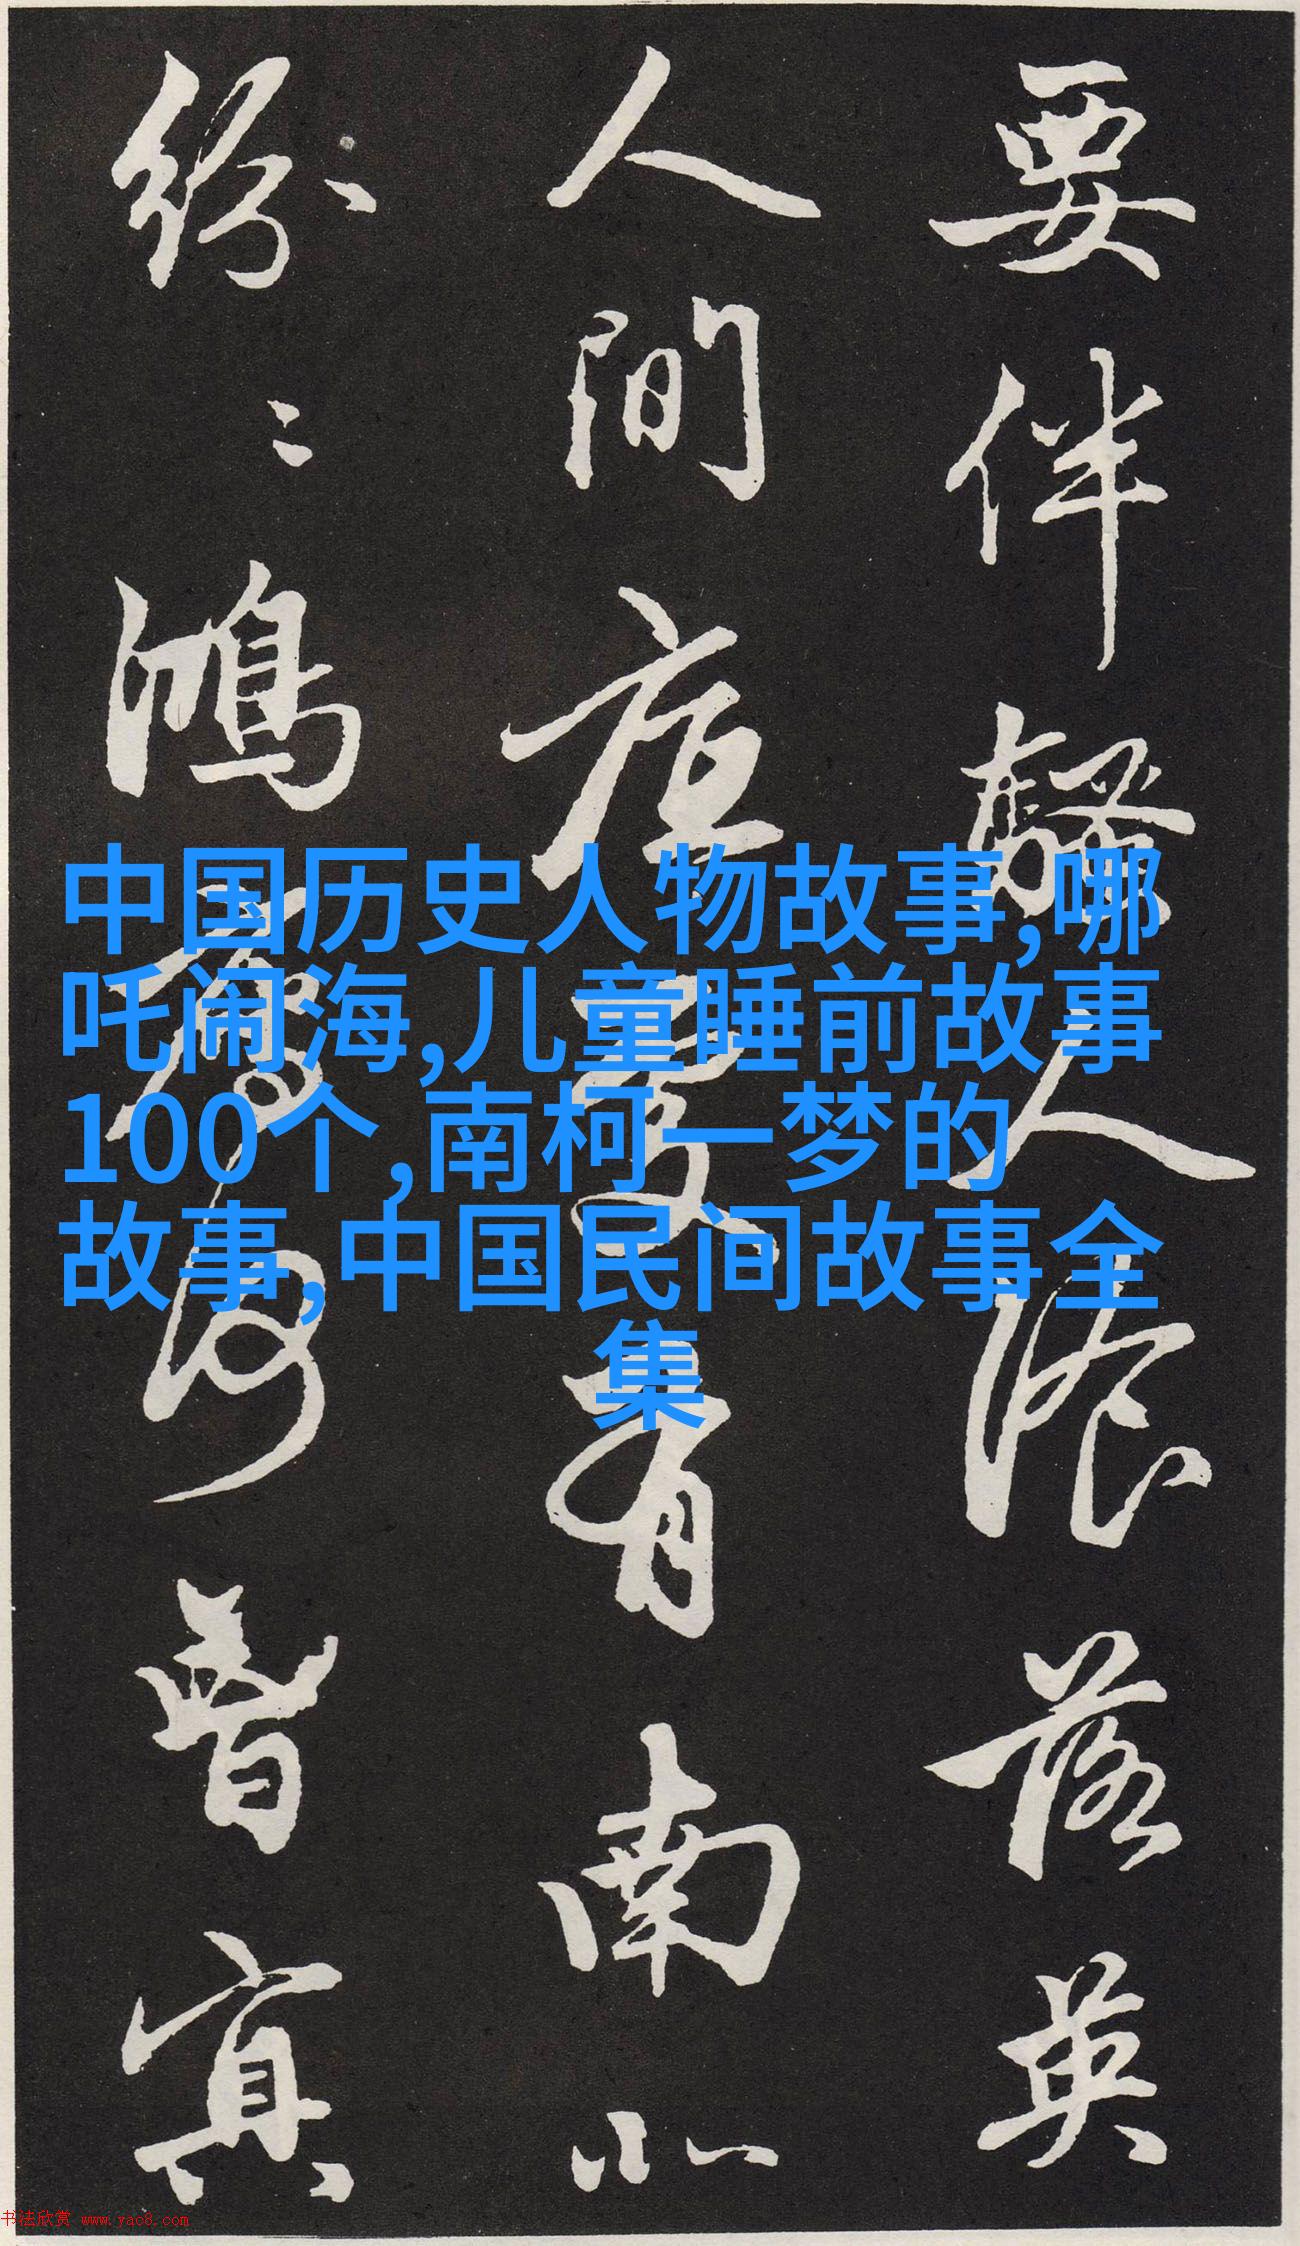 要伴騷人飡落英
人間底處有南北
紛〻鴻鴈何曾冥
中国历史人物故事,哪
吒闹海,儿童睡前故事
100个,南柯一梦的
故事,中国民间故事全
集
书法欣赏 www.yac8.com